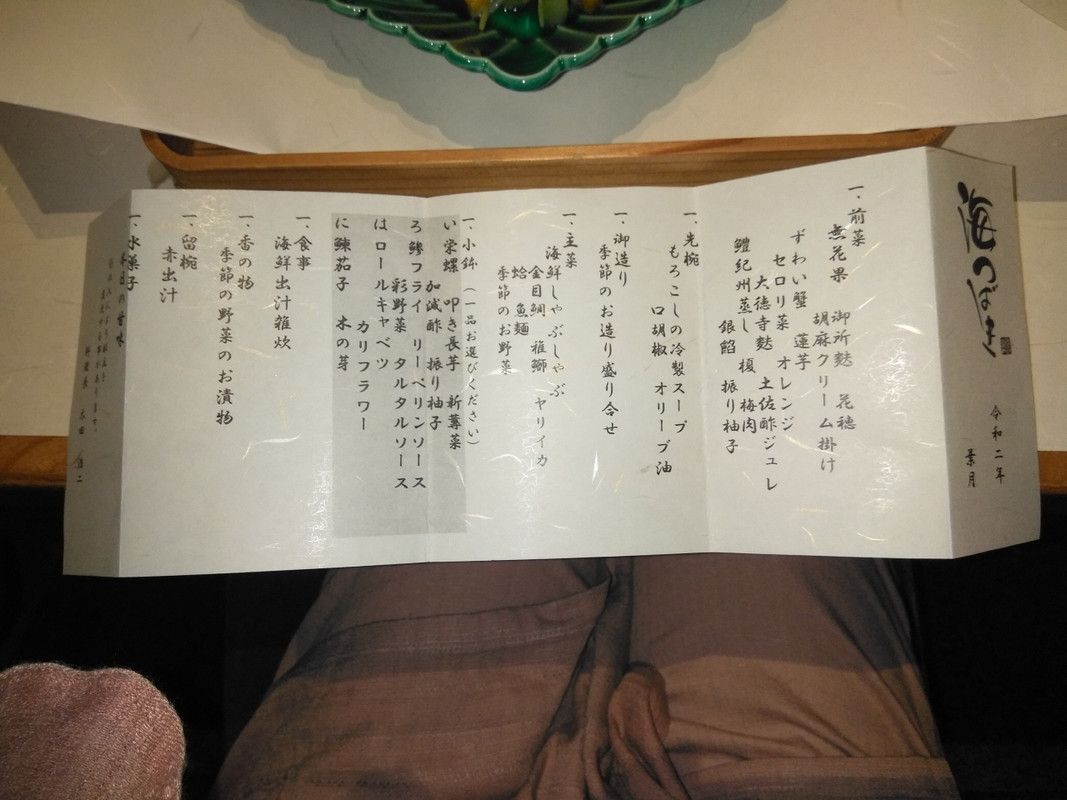 海つばき
令和二年
葉月
一、前菜
無花果　御所麩　花穂
胡麻クリーム掛け
ずわい蟹　蓮芋
セロリ菜　オレンジ
大徳寺麩　土佐酢ジュレ
鱧紀州蒸し　榎　梅肉
銀餡　振り柚子
一、先椀
もろこしの冷製スープ
口胡椒　オリーブ油
一、御造り
季節のお造り盛り合せ
一、主菜
海鮮しゃぶしゃぶ
金目鯛　稚鰤　ヤリイカ
蛤　魚麺
季節のお野菜
一、小鉢　（一品お選びください）
い　栄螺　叩き長芋　新蓴菜
加減酢　振り柚子
ろ　鯵フライ　リーペリンソース
彩野菜　タルタルソース
は　ロールキャベツ
カリフラワー
に　鰊茄子　木の芽
一、食事
海鮮出汁雑炊
一、香の物
季節の野菜のお漬物
一、留椀
赤出汁
一、水菓子
本日の甘味
料理長